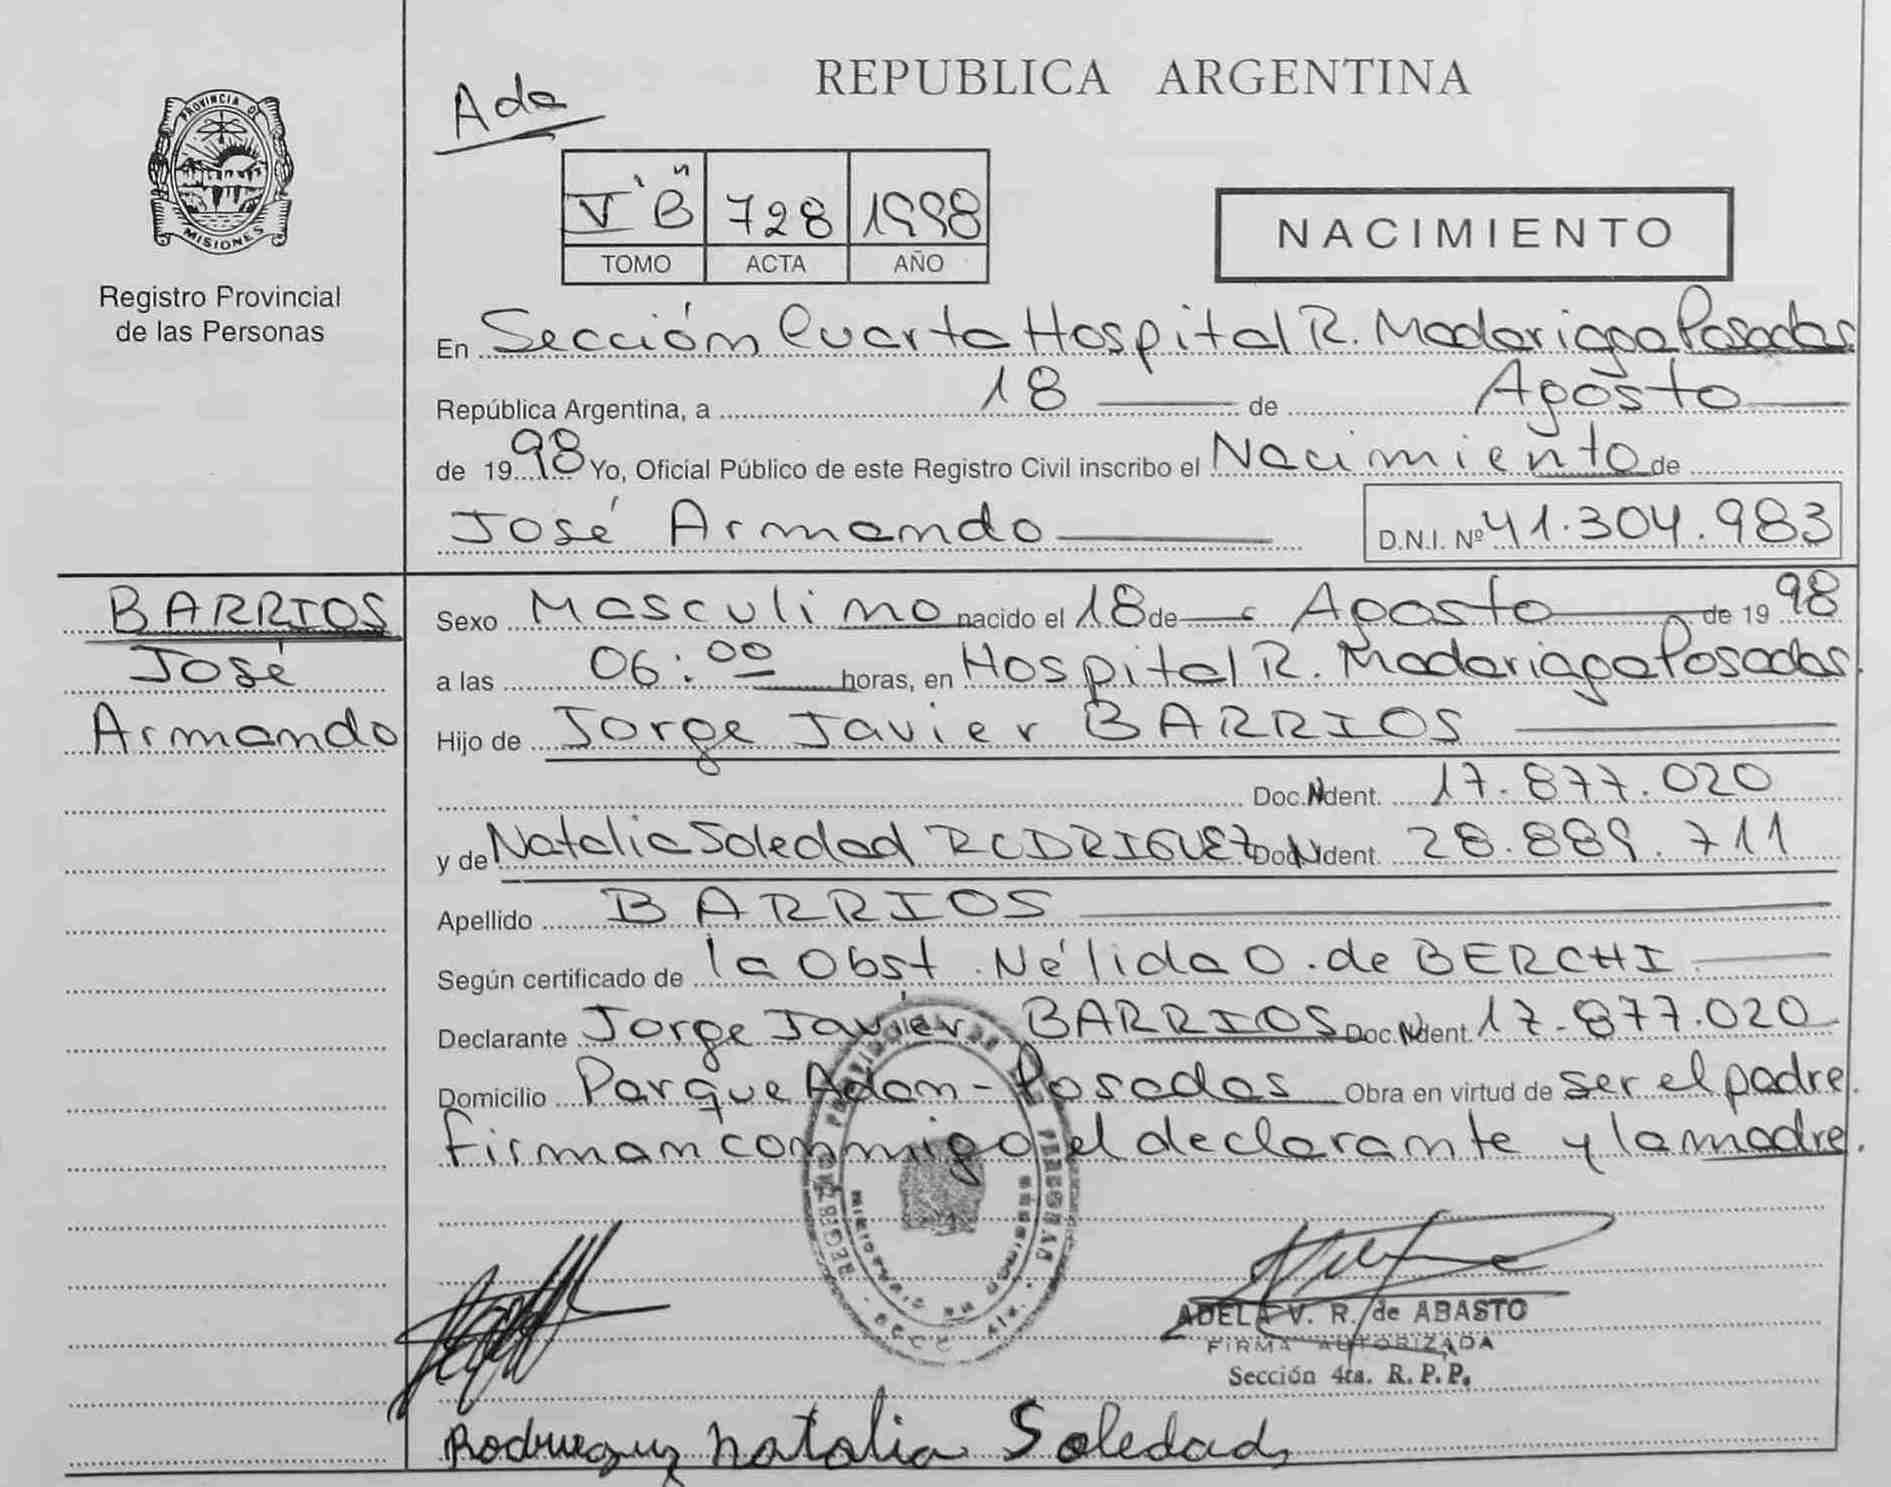 REPUBLICA ARGENTINA
Ada
PROVINCIA DE
MISIONES
Registro Provincial
de las Personas
V "B" 728 1998
TOMO ACTA AÑO
NACIMIENTO
En Sección Cuarta Hospital R. Madariaga Posadas
República Argentina, a 18 de Agosto
de 1998 Yo, Oficial Público de este Registro Civil inscribo el Nacimiento de
José Armando D.N.I. Nº 41.304.983
BARRIOS
José
Armando
Sexo Masculino nacido el 18 de Agosto de 1998
a las 06:00 horas, en Hospital R. Madariaga Posadas.
Hijo de Jorge Javier BARRIOS
Doc. Ident. 17.877.020
y de Natalia Soledad RODRIGUEZ Doc. Ident. 28.889.711
Apellido BARRIOS
Según certificado de la Obst. Nélida O. de BERCHI
Declarante Jorge Javier BARRIOS Doc. Ident. 17.877.020
Domicilio Parque Adam - Posadas Obra en virtud de ser el padre.
Firman conmigo el declarante y la madre.
ADELA V. R. de ABASTO
FIRMA AUTORIZADA
Sección 4ta. R. P. P.
Rodriguez Natalia Soledad